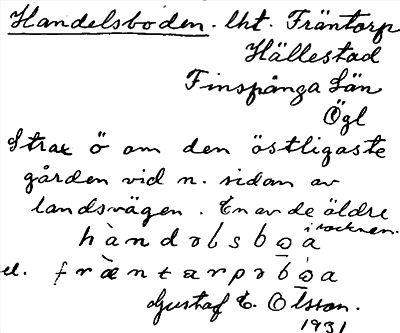 Handelsboden. lht. Fräntorp
Hällestad
Finspånga Län
Ögl
Strax ö om den östligaste
gården vid n. sidan av
landsvägen. En av de äldre
i socknen.
hàndəlsboa
el. fræntarpəbóa
Gustaf E. Olsson.
1931